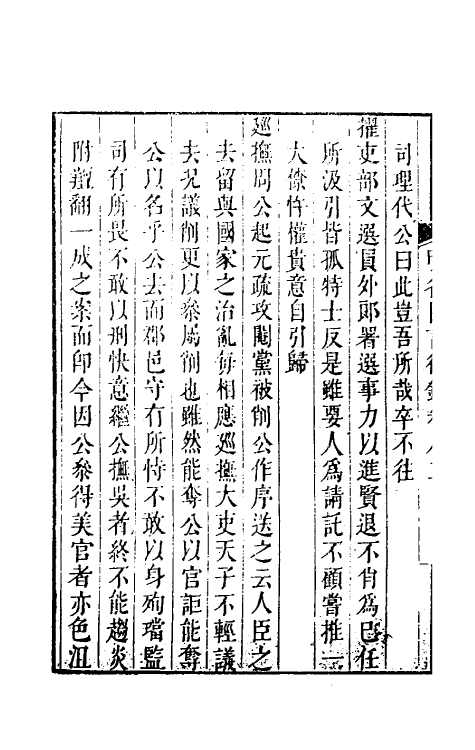 司理代公曰此豈吾所哉卒不往
擢吏部文選員外郎署選事力以進賢退不肖爲巳任
所汲引皆孤特士反是雖要人爲請託不顧嘗推一
大僚忤權貴意自引歸
廵撫周公起元疏攻閹黨被削公作序送之云人臣之
去留與國家之治亂每相應廵撫大吏天子不輕議
去况議削更以叅屬削也雖然能奪公以官詎能奪
公以名乎公去而郡邑守有所恃不敢以身殉璫監
司有所畏不敢以刑快意繼公撫吳者終不能趨炎
附羶翻一成之案而卽今因公叅得美官者亦色沮